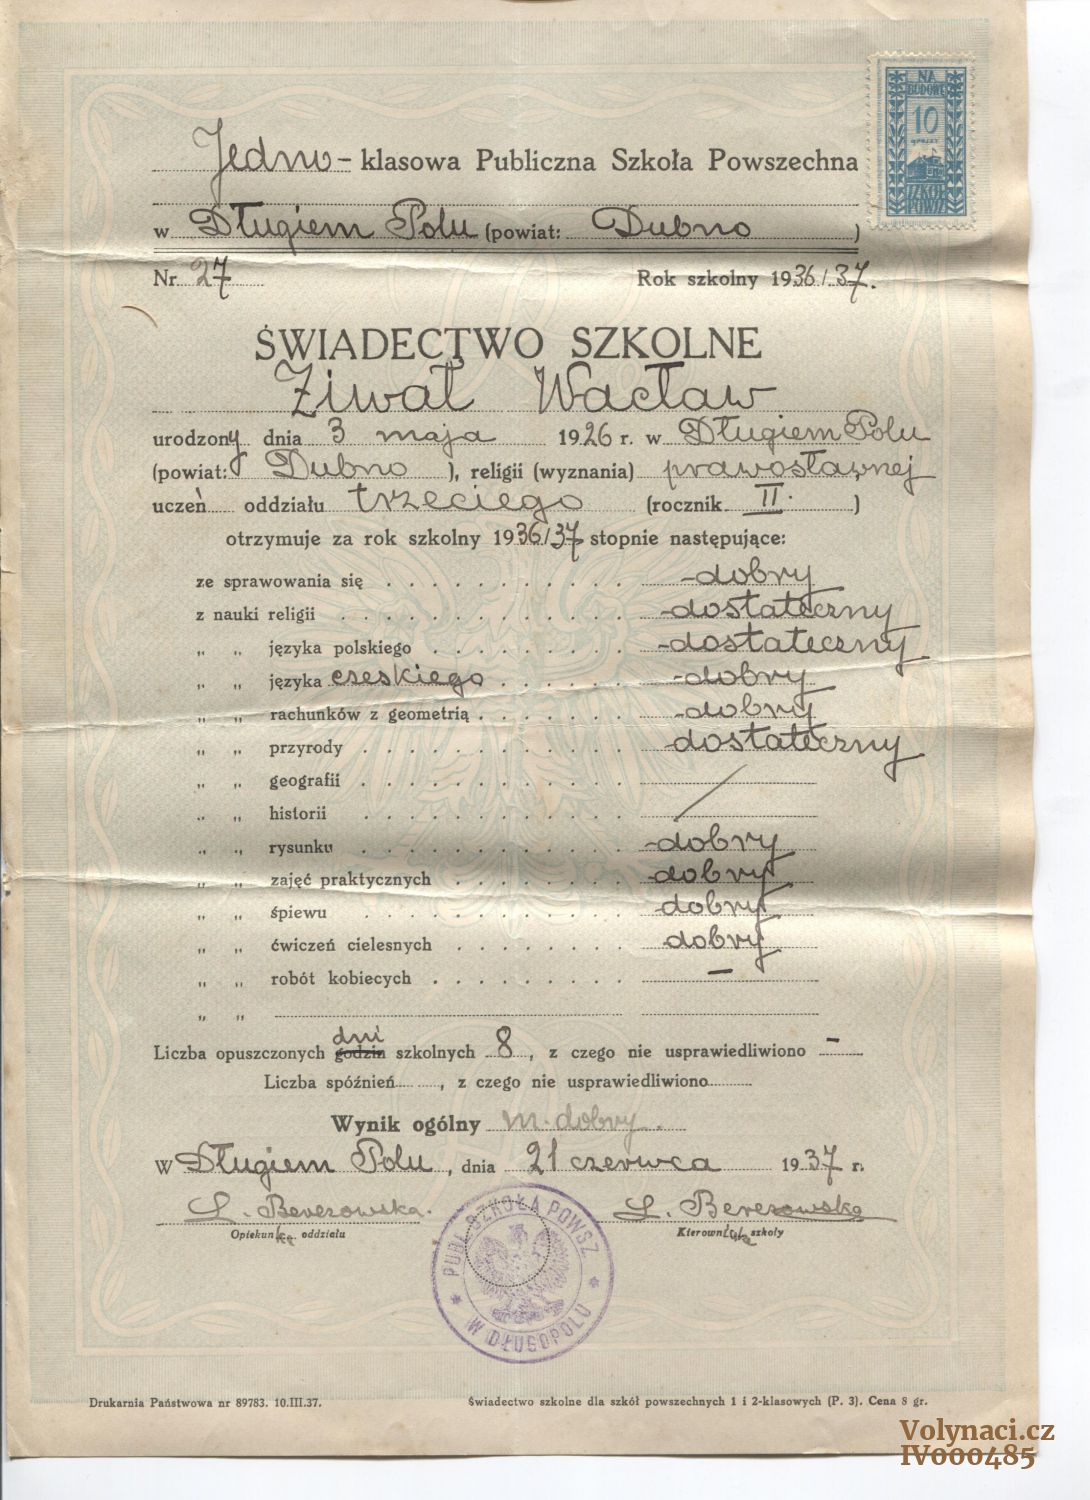 NA
BUDOWĘ
10
groszy
SZKÓŁ
POWSZ
Jedno- klasowa Publiczna Szkoła Powszechna
w Długiem Polu (powiat: Dubno )
Nr 27 Rok szkolny 1936/37.
ŚWIADECTWO SZKOLNE
Ziwał Wacław
urodzony dnia 3 maja 1926 r. w Długiem Polu
(powiat: Dubno ), religii (wyznania) prawosławnej
uczeń oddziału trzeciego (rocznik II. )
otrzymuje za rok szkolny 1936/37 stopnie następujące:
ze sprawowania się . . . . . . . . . . . -dobry
z nauki religii . . . . . . . . . . . . -dostateczny
„ „ języka polskiego . . . . . . . . . -dostateczny
„ „ języka czeskiego . . . . . . -dobry
„ „ rachunków z geometrią . . . . . . -dobry
„ „ przyrody . . . . . . . . . . . dostateczny
„ „ geografii . . . . . . . . . . .
„ „ historii . . . . . . . . . . . /
„ „ rysunku . . . . . . . . . . . -dobry
„ „ zajęć praktycznych . . . . . . . dobry
„ „ śpiewu . . . . . . . . . . . dobry
„ „ ćwiczeń cielesnych . . . . . . . dobry
„ „ robót kobiecych . . . . . . . . —
„ „
dni
Liczba opuszczonych godzin szkolnych 8 , z czego nie usprawiedliwiono -
Liczba spóźnień , z czego nie usprawiedliwiono
Wynik ogólny m. dobry.
w Długiem Polu , dnia 21 czerwca 1937 r.
L. Berezowska. L. Berezowska
Opiekunka oddziału Kierowniczka szkoły
PUBL. SZKOŁA POWSZ.
* W DŁUGOPOLU *
Drukarnia Państwowa nr 89783. 10.III.37. Świadectwo szkolne dla szkół powszechnych 1 i 2-klasowych (P. 3). Cena 8 gr.
Volynaci.cz
IV000485